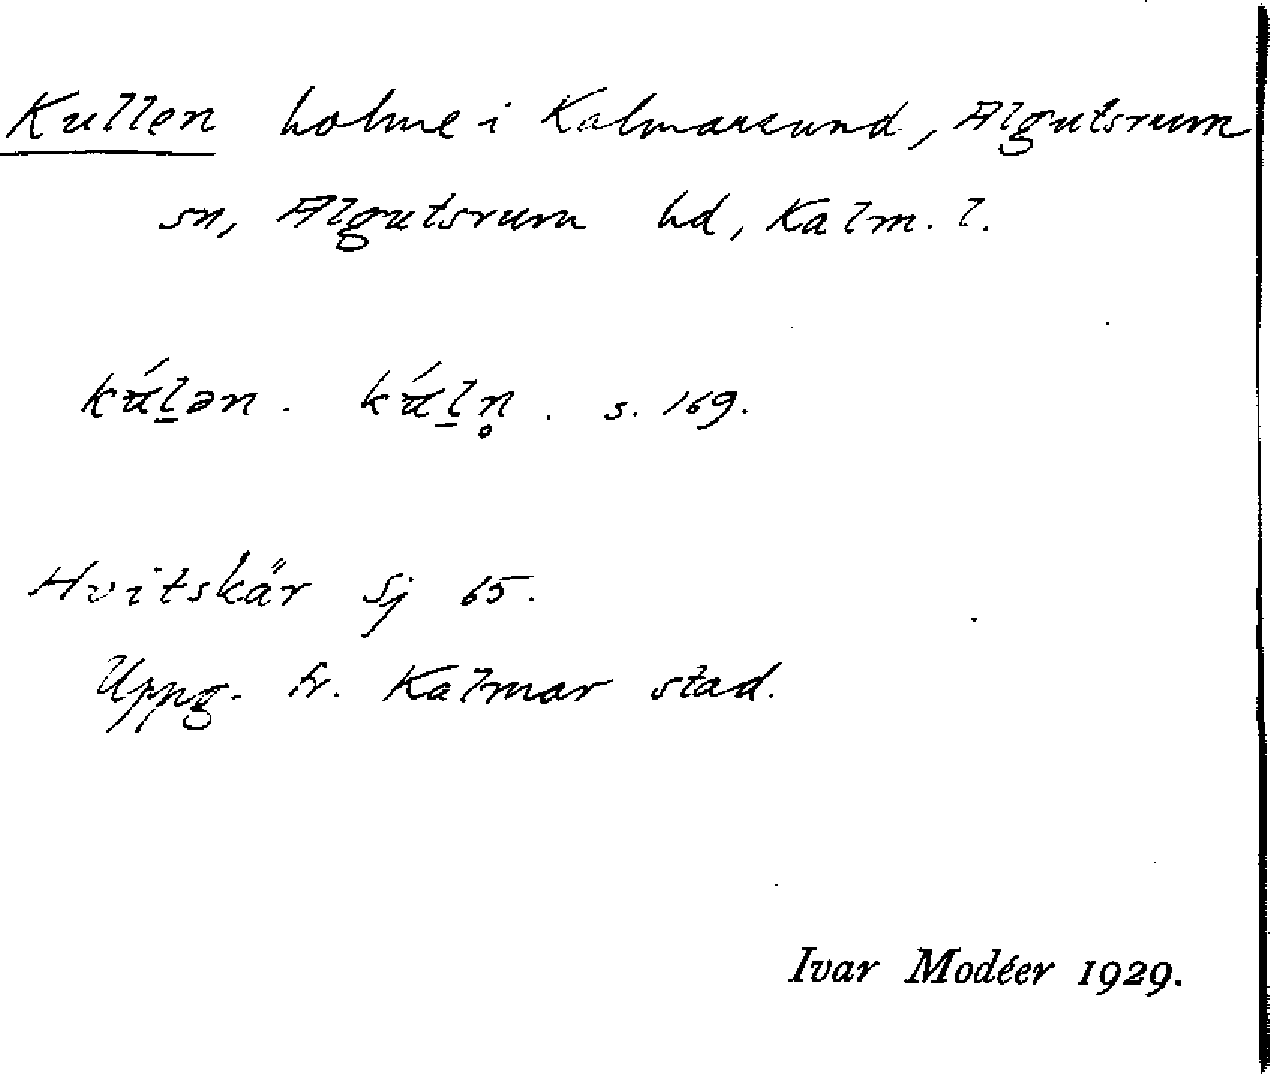 Kullen holme i Kalmarsund, Algutsrum
sn, Algutsrum hd, Kalm. l.
kúl̲ən. kúl̲n̥. s. 169.
Hvitskär Sj 65.
Uppg. fr. Kalmar stad.
Ivar Modéer 1929.